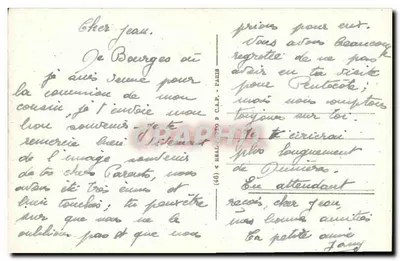 Cher Jean.
De Bourges où
je suis venue pour
la communion de mon
cousin, je t'envoie mon
bon souvenir. Je te
remercie bien
de l'image souvenir
de tes chers Parents, nous
avons été très émus et
bien touchés; tu peux être
sûr que nous ne le
oublions pas et que nous
prions pour eux.
Nous avons beaucoup
regretté de ne pas
avoir eu ta visite
pour Pentecôte,
mais nous comptons
toujours sur toi.
Je t'écrirai
plus longuement
de
En attendant
reçois, cher Jean,
nos bonnes amitiés
Ta petite amie
(46) REAL PHOTO C.A.P. - PARIS